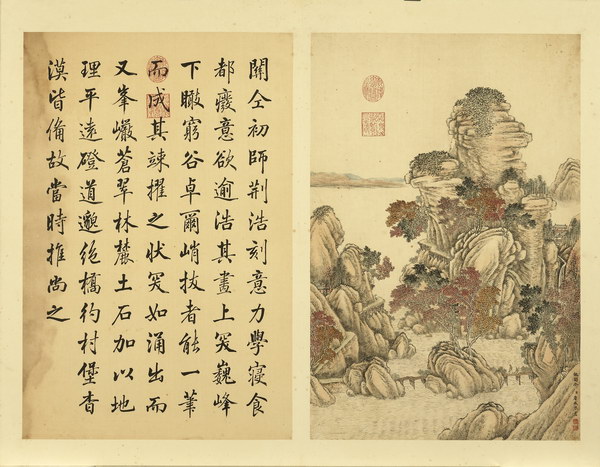 關仝初師荆浩刻意力學寢食
都廢意欲逾浩其畫上突巍峰
下瞰窮谷卓爾峭拔者能一筆
而成其竦擢之狀突如涌出而
又峯巖蒼翠林麓土石加以地
理平遠磴道邈絶橋彴村堡杳
漠皆偹故當時推尚之